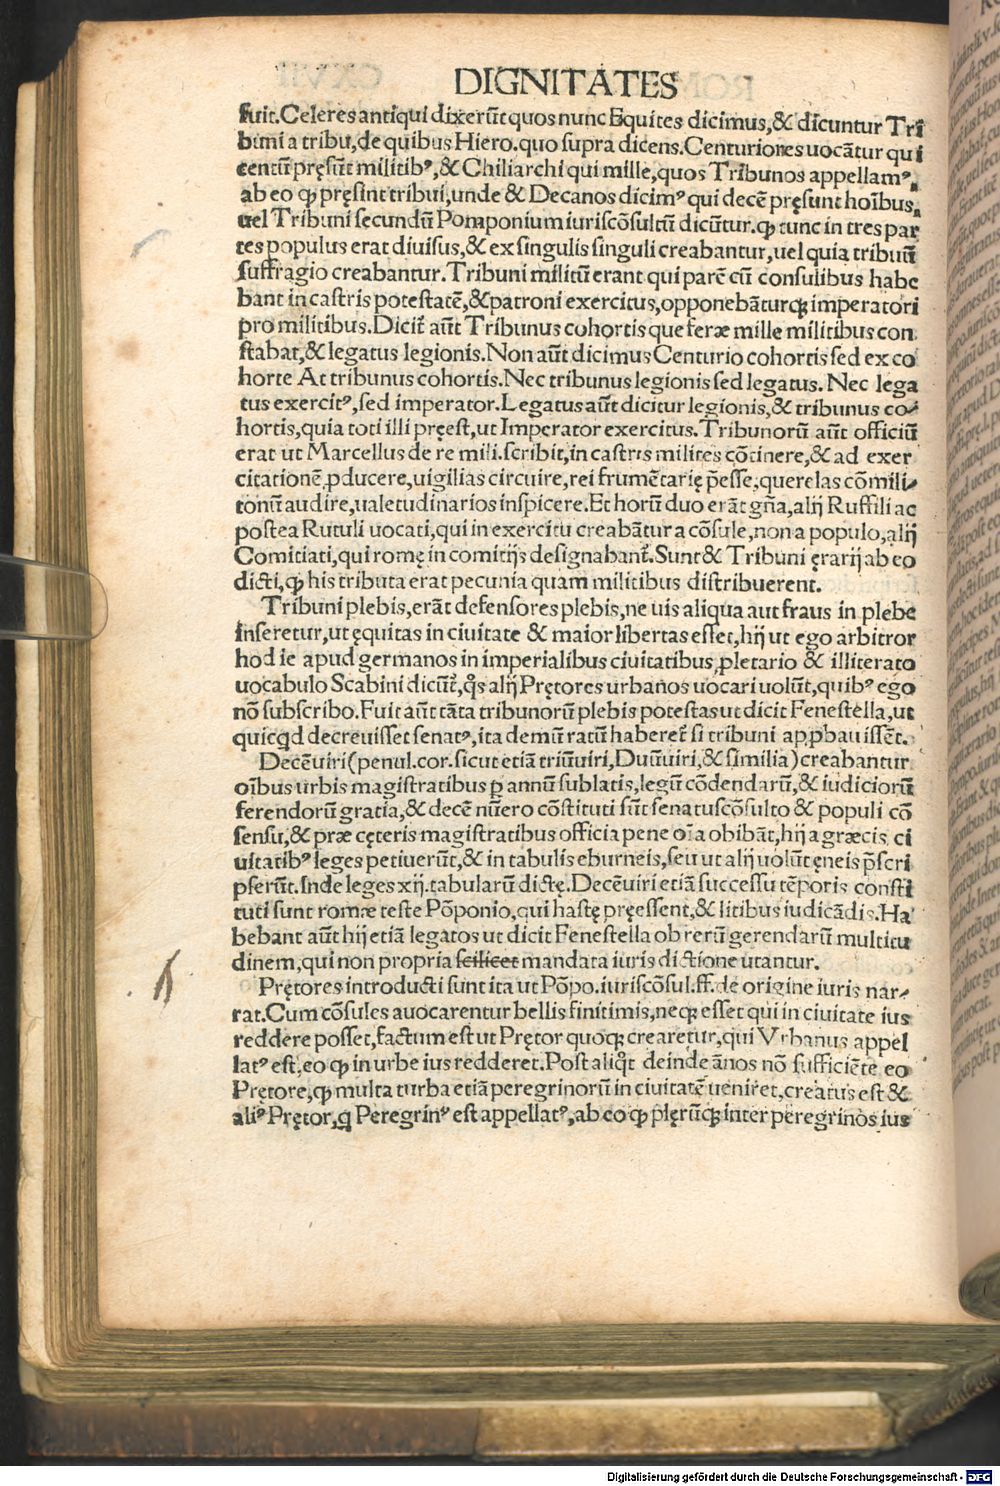 DIGNITATES
fuit. Celeres antiqui dixerũt quos nunc Equites dicimus, & dicuntur Tri
buni a tribu, de quibus Hiero. quo supra dicens. Centuriones uocãtur qui
centũ pręsũt militibꝰ, & Chiliarchi qui mille, quos Tribunos appellamꝰ,
ab eo ꝙ pręsint tribui, unde & Decanos dicimꝰ qui decẽ pręsunt hoĩbus,
uel Tribuni secundũ Pomponium iuriscõsultũ dicũtur. ꝙ tunc in tres par
tes populus erat diuisus, & ex singulis singuli creabantur, uel quia tribuũ
suffragio creabantur. Tribuni militũ erant qui parẽ cũ consulibus habe
bant in castris potestatẽ, & patroni exercitus, opponebãturqꝫ imperatori
pro militibus. Dicit̃ aũt Tribunus cohortis que feræ mille militibus con
stabat, & legatus legionis. Non aũt dicimus Centurio cohortis sed ex co
horte At tribunus cohortis. Nec tribunus legionis sed legatus. Nec lega
tus exercitꝰ, sed imperator. Legatus aũt dicitur legionis, & tribunus co-
hortis, quia toti illi pręest, ut Imperator exercitus. Tribunorũ aũt officiũ
erat ut Marcellus de re mili. scribit, in castris milites cõtinere, & ad exer
citationẽ ꝓducere, uigilias circuire, rei frumẽtarię p̃esse, querelas cõmili-
tonũ audire, ualetudinarios inspicere. Et horũ duo erãt gña, alij Ruffili ac
postea Rutuli uocati, qui in exercitu creabãtur a cõsule, non a populo, alij
Comitiati, qui romę in comitijs designabant̃. Sunt & Tribuni ęrarij ab eo
dicti, ꝙ his tributa erat pecunia quam militibus distribuerent.
Tribuni plebis, erãt defensores plebis, ne uis aliqua aut fraus in plebe
insereretur, ut ęquitas in ciuitate & maior libertas esset, hij ut ego arbitror
hodie apud germanos in imperialibus ciuitatibus ꝓletario & illiterato
uocabulo Scabini dicũt̃, q̃s alij Prętores urbanos uocari uolũt, quibꝰ ego
nõ subscribo. Fuit aũt tãta tribunorũ plebis potestas ut dicit Fenestella, ut
quicꝗd decreuisset senatꝰ, ita demũ ratũ haberet̃ si tribuni apꝓbauissẽt.
Decẽuiri (penul. cor. sicut etiã triũuiri, Duũuiri, & similia) creabantur
oĩbus urbis magistratibus ꝑ annũ sublatis, legũ cõdendarũ, & iudiciorũ
ferendorũ gratia, & decẽ nũero cõstituti sũt senatuscõsulto & populi cõ
sensu, & præ cęteris magistratibus officia pene oĩa obibãt, hij a græcis ci
uitatibꝰ leges petiuerũt, & in tabulis eburneis, seu ut alij uolũt ęneis p̃scri
pserũt. Inde leges xij. tabularũ dictę. Decẽuiri etiã successu tẽporis consti
tuti sunt romæ teste Põponio, qui hastę pręessent, & litibus iudicãdis. Ha
bebant aũt hij etiã legatos ut dicit Fenestella ob rerũ gerendarũ multitu
dinem, qui non propria scilicet mandata iuris dictione utantur.
Prętores introducti sunt ita ut Põpo. iuriscõsul. ff. de origine iuris nar-
rat. Cum cõsules auocarentur bellis finitimis, neqꝫ esset qui in ciuitate ius
reddere posset, factum est ut Prętor quoqꝫ crearetur, qui Vrbanus appel
latꝰ est, eo ꝙ in urbe ius redderet. Post aliq̃t deinde ãnos nõ sufficiẽte eo
Prętore, ꝙ multa turba etiã peregrinorũ in ciuitatẽ ueniret, creatus est &
aliꝰ Prętor, ꝗ Peregrinꝰ est appellatꝰ, ab eo ꝙ plęrũqꝫ inter peregrinos ius
Digitalisierung gefördert durch die Deutsche Forschungsgemeinschaft - DFG